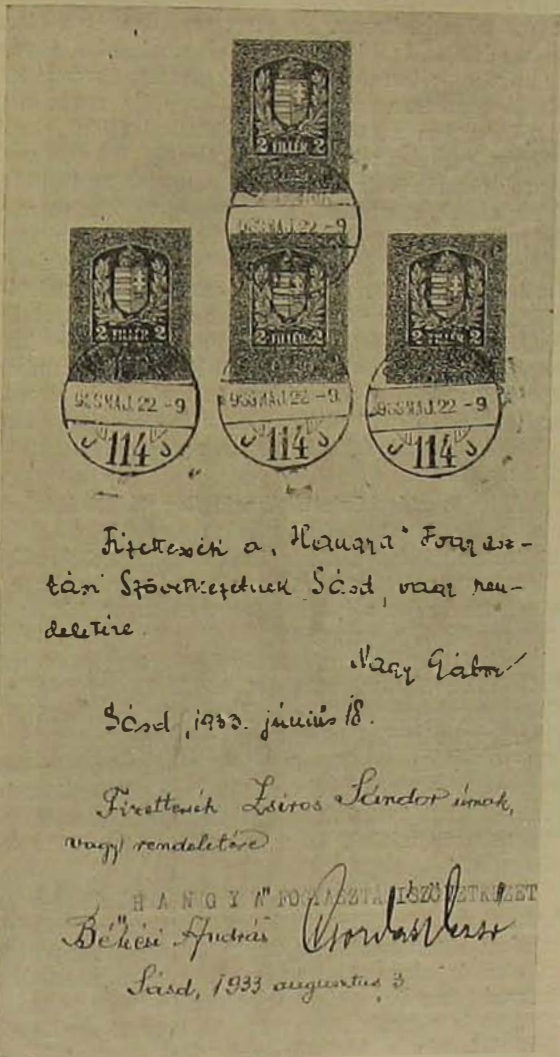 2 FILLÉR 2
2 FILLÉR 2
2 FILLÉR 2
2 FILLÉR 2
933 MAJ. 22 - 9
933 MAJ. 22 - 9
933 MAJ. 22 - 9
933 MAJ. 22 - 9
114
114
114
Fizettessék a „Hangya" Fogyasz-
tási Szövetkezetnek Sásd, vagy ren-
deletére
Nagy Gábor
Sásd, 1933. június 18.
Fizettessék Zsiros Sándor úrnak,
vagy rendeletére
"HANGYA" FOGYASZTÁSI SZÖVETKEZET
Békési András
Sásd, 1933 augusztus 3